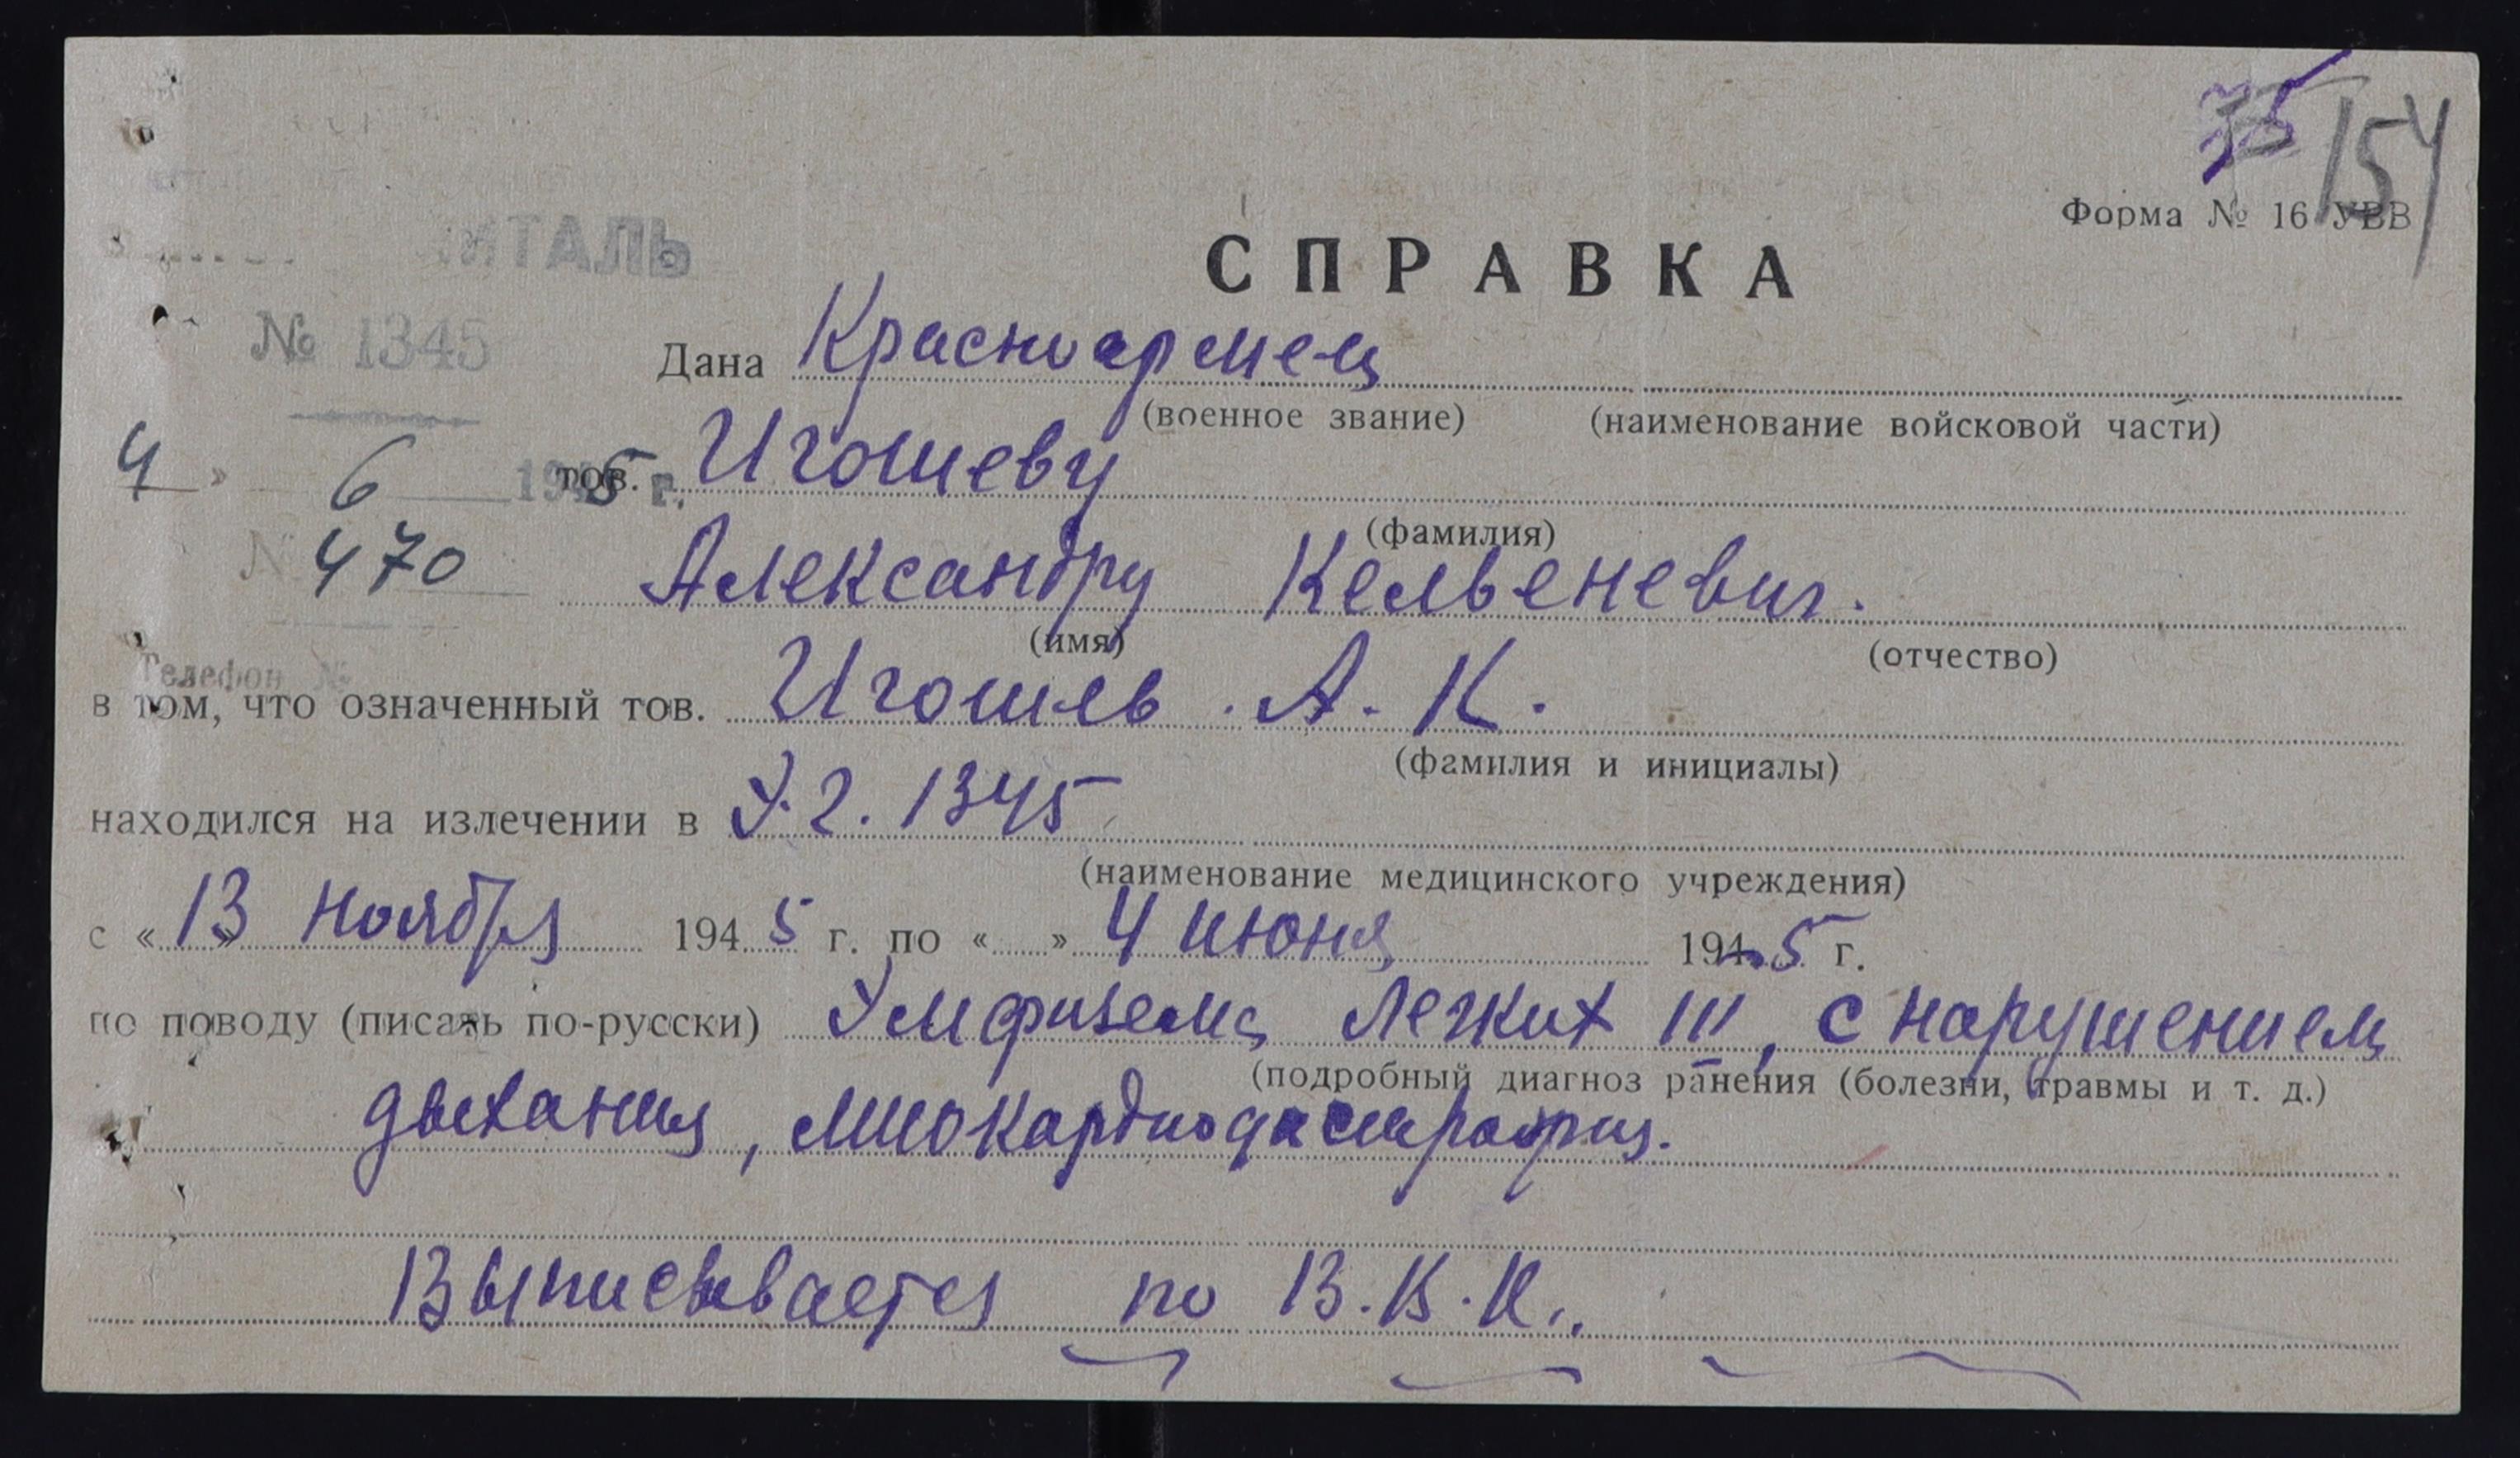 154
Форма № 16 УВВ
СПРАВКА
№ 1345
Дана Красноармец
(военное звание) (наименование войсковой части)
4 » 6 1945 г.
тов. Игошеву
(фамилия)
№ 470
Александру Кельвеневич.
(имя) (отчество)
Телефон №
в том, что означенный тов. Игошев. А. К.
(фамилия и инициалы)
находился на излечении в Э.Г. 1345
(наименование медицинского учреждения)
с «13» ноября 1945 г. по « » 4 июня 1945 г.
по поводу (писать по-русски) Эмфизема легких III, с нарушением
(подробный диагноз ранения (болезни, травмы и т. д.)
дыхания, миокардиодистрофия.
Выписывается по В.К.К.